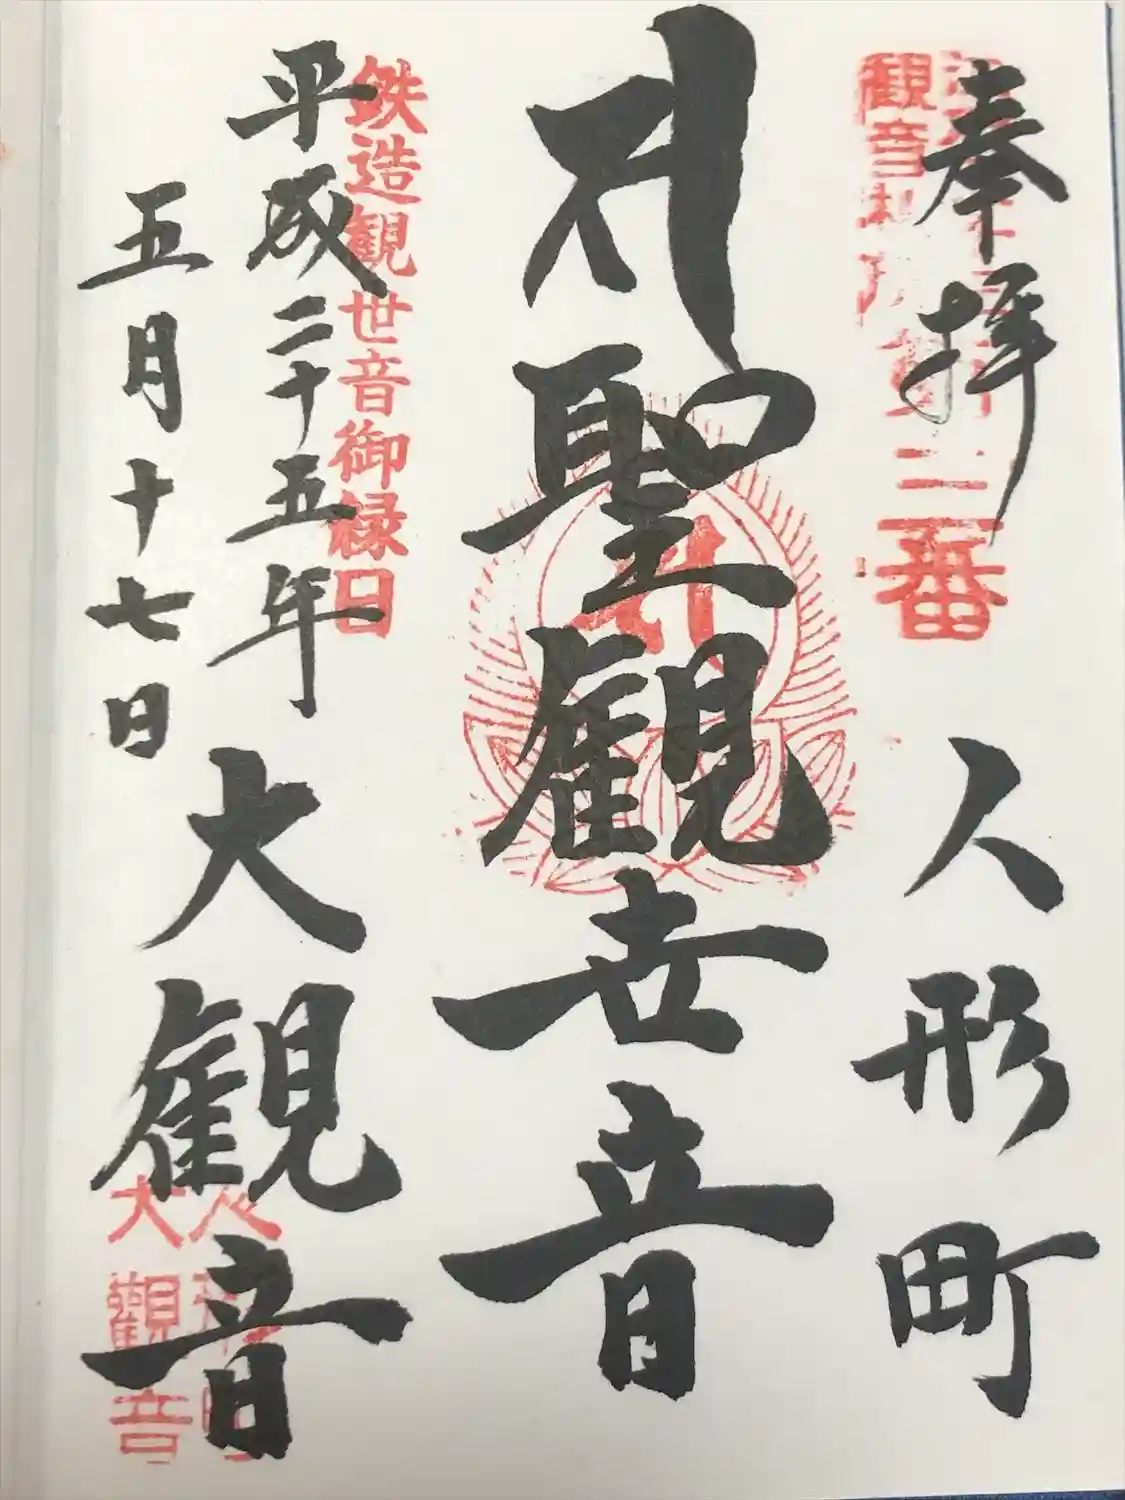 奉拝
人形町
観音札所第三番
聖観世音
鉄造観世音御縁日
平成二十五年
五月十七日
大観音
人形町
大観音